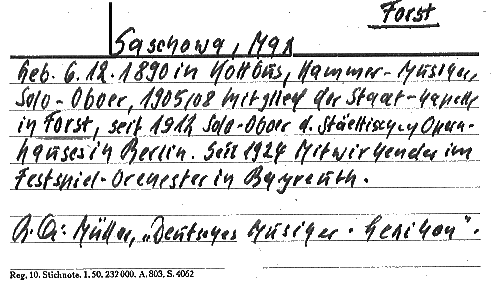 Forst
Saschowa, Max
Geb. 6.12.1890 in Kottbus, Kammer-Musiker,
Solo-Oboer, 1905/08 Mitglied der Staat-Kapelle
in Forst, seit 1912 Solo-Oboer d. Städtischen Opern-
hauses in Berlin. Seit 1924 Mitwirkender im
Festspiel-Orchester in Bayreuth.
Müller, „Deutsches Musiker-Lexikon".
Reg. 10. Stichnote. 1. 50. 232000. A. 803. S. 4062